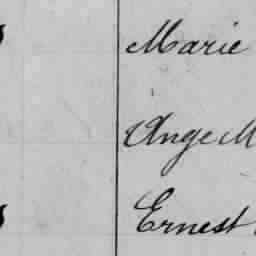 Marie
Ange M
Ernest